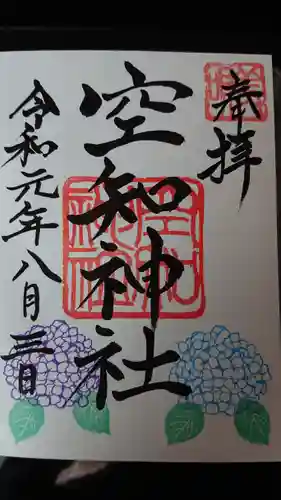 奉拝
空知神社
令和元年八月三日